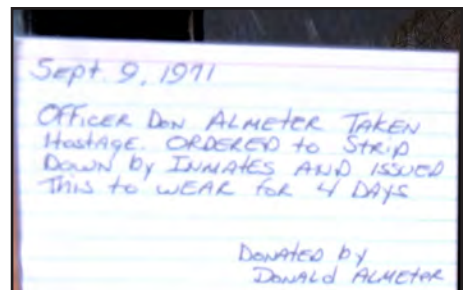 Sept. 9, 1971
OFFICER DON ALMETER TAKEN
HOSTAGE. ORDERED to STRIP
DOWN by INMATES AND ISSUED
THIS to WEAR for 4 DAYS
DONATED by
DONALD ALMETER